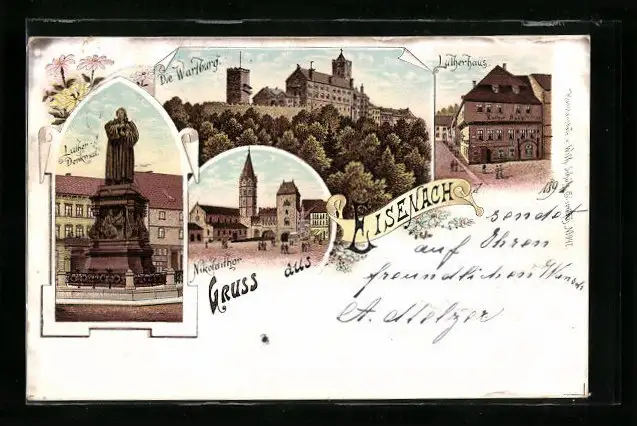 Die Wartburg.
Lutherhaus.
Luther-
Denkmal.
Nikolaithor
Gruss aus Eisenach
189
sendet
auf Ihren
freundlichen Wunsch
A. Metzger